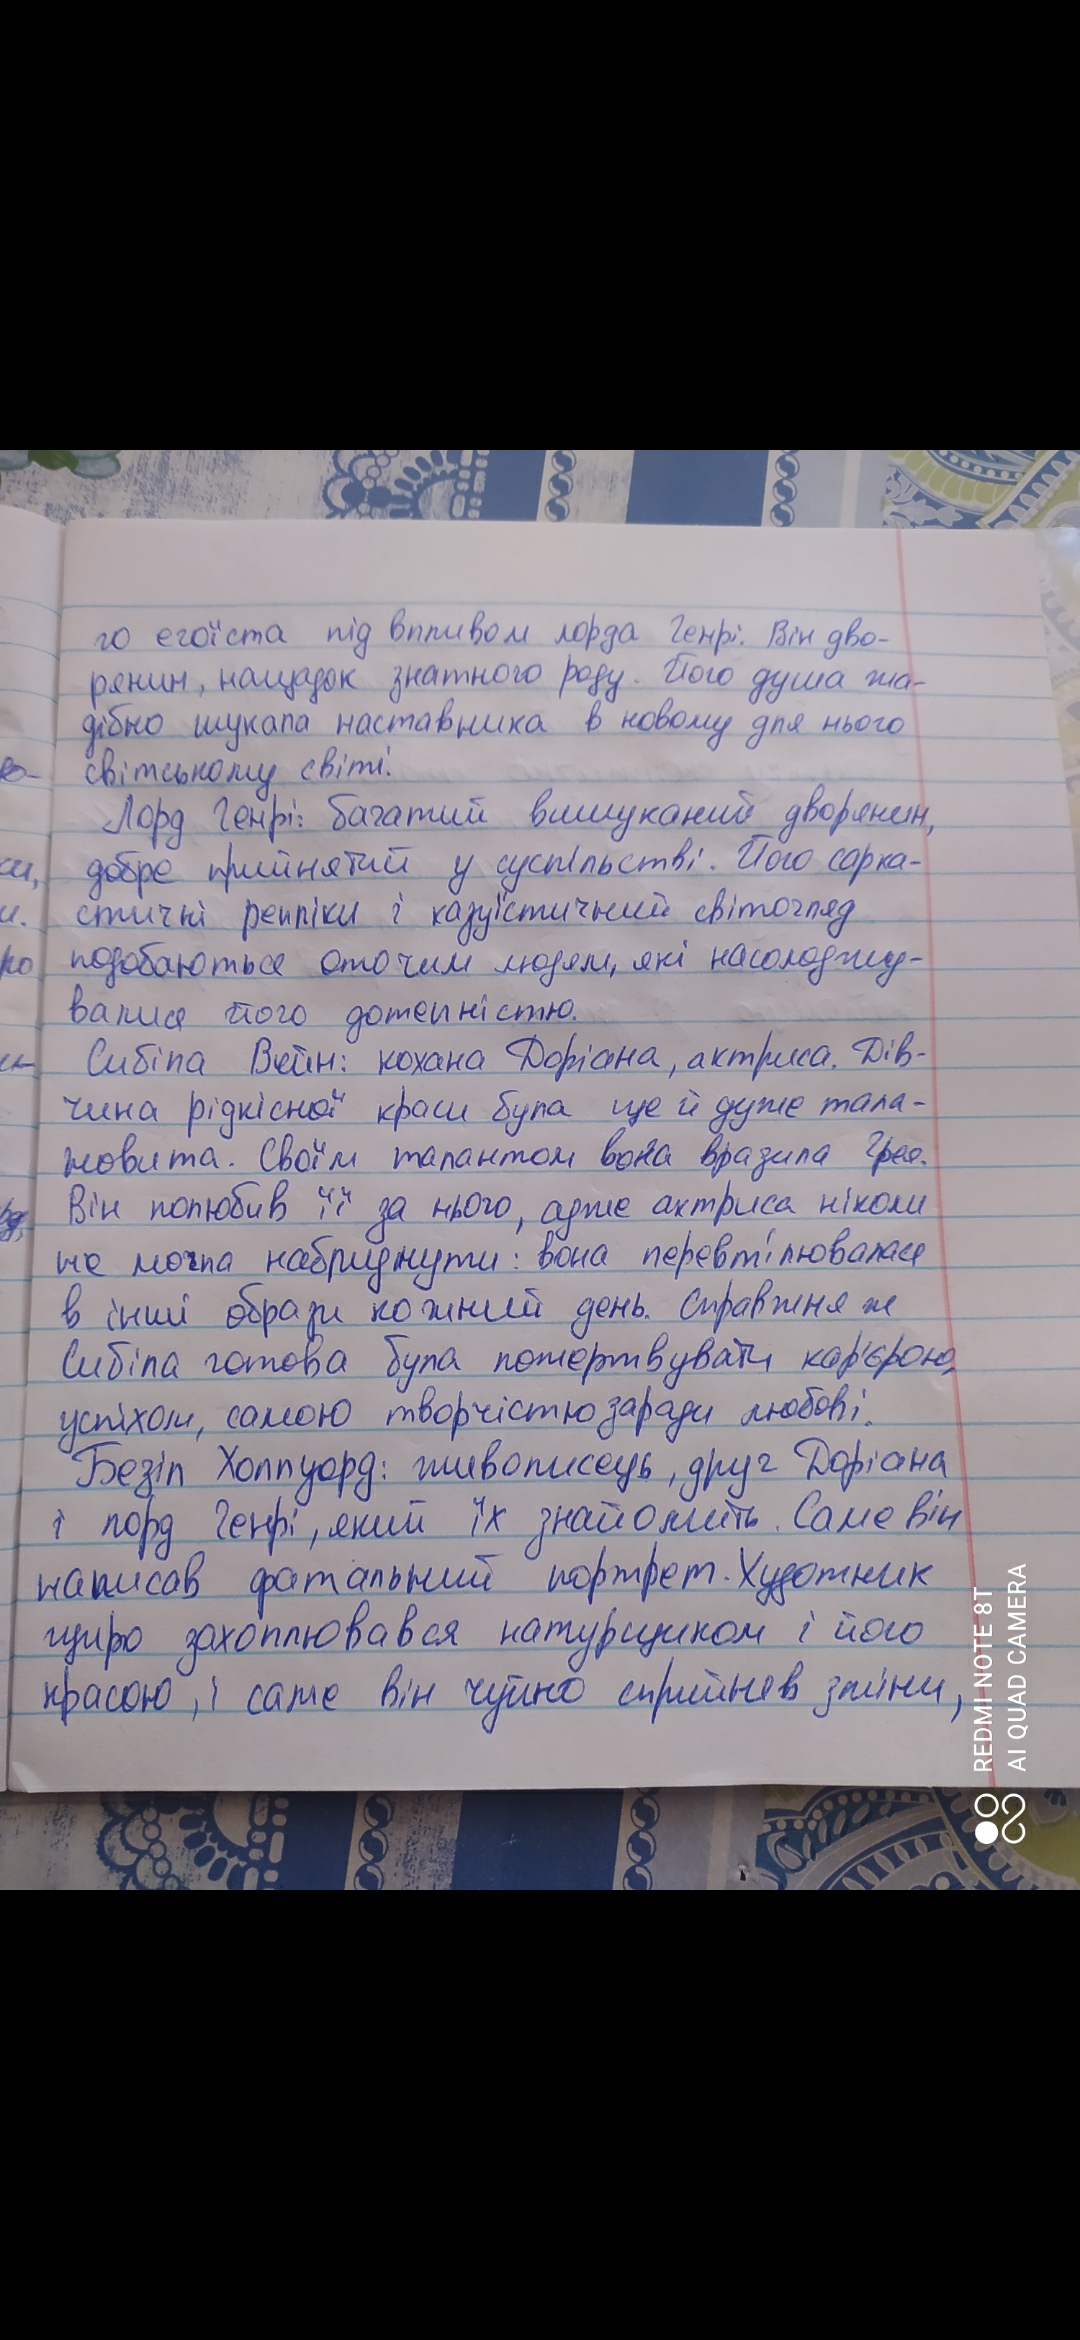 го егоїста під впливом лорда Генрі. Він дво-
рянин, нащадок знатного роду. Його душа жа-
дібно шукала наставника в новому для нього
світському світі.
Лорд Генрі: багатий вишуканий дворянин,
добре прийнятий у суспільстві. Його сарка-
стичні репліки і казуїстичний світогляд
подобаються оточим людям, які насолоджу-
валися його дотепністю.
Сибіла Вейн: кохана Доріана, актриса. Дів-
чина рідкісної краси була ще й дуже тала-
новита. Своїм талантом вона вразила Грея.
Він полюбив її за нього, адже актриса ніколи
не могла набриднути: вона перевтілювалася
в інші образи кожний день. Справжня ж
Сибіла готова була пожертвувати кар'єрою,
успіхом, самою творчістю заради любові.
Безіл Холлуорд: живописець, друг Доріана
і лорд Генрі, який їх знайомить. Саме він
написав фатальний портрет. Художник
щиро захоплювався натурщиком і його
красою, і саме він чуйно сприйняв зміни,
REDMI NOTE 8T
AI QUAD CAMERA